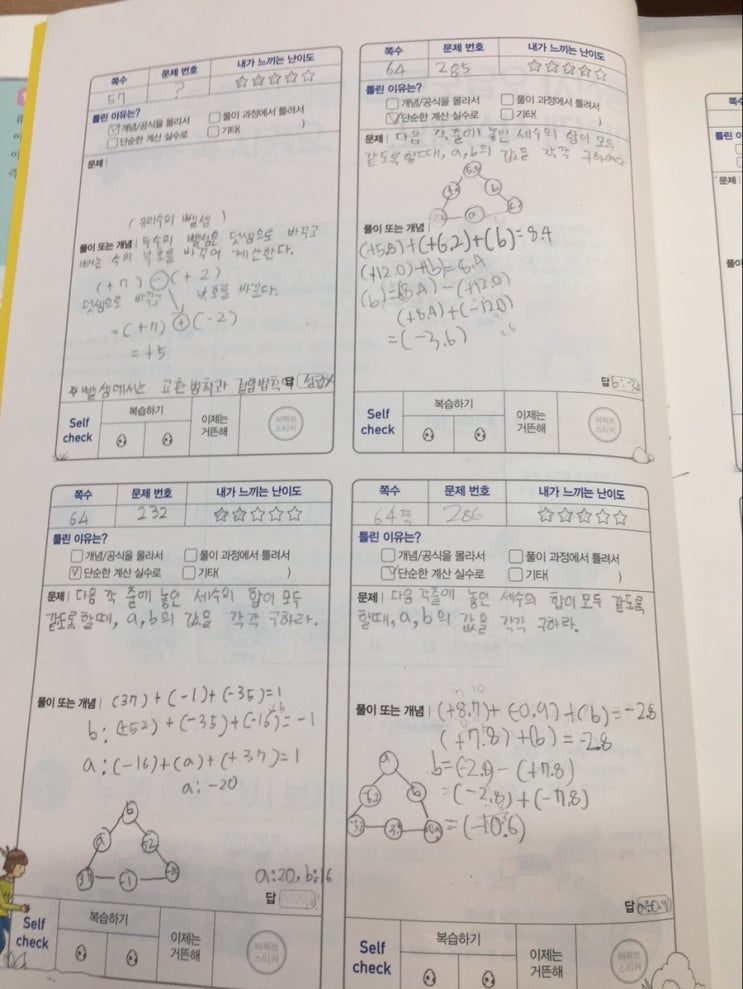 쪽수 문제 번호 내가 느끼는 난이도
57 ?
틀린 이유는?
개념/공식을 몰라서 풀이 과정에서 틀려서
단순한 계산 실수로 기타( )
문제
(유리수의 뺄셈)
풀이 또는 개념 두수의 뺄셈은 덧셈으로 바꾸고
빼는 수의 부호를 바꾸어 계산한다.
(+7) - (+2)
덧셈으로 바꾸고 부호를 바꾼다.
=(+7)+(-2)
=+5
뺄셈에서는 교환법칙과 결합법칙
Self check
복습하기
이제는 거뜬해
퍼펙트 스티커
쪽수 문제 번호 내가 느끼는 난이도
64 285
틀린 이유는?
개념/공식을 몰라서 풀이 과정에서 틀려서
단순한 계산 실수로 기타( )
문제 다음 각 줄에 놓인 세수의 합이 모두
같도록 할때, a,b의 값을 각각 구하여라
5.8
b
6.2
a
풀이 또는 개념
(+5.8)+(+6.2)+(b)=8.4
(+12.0)+(b)=8.4
(b)=(8.4)-(+12.0)
(+8.4)+(-12.0)
=(-3.6)
답
Self check
복습하기
이제는 거뜬해
퍼펙트 스티커
쪽수 문제 번호 내가 느끼는 난이도
64 232
틀린 이유는?
개념/공식을 몰라서 풀이 과정에서 틀려서
단순한 계산 실수로 기타( )
문제 다음 각 줄에 놓인 세수의 합이 모두
같도록 할때, a,b의 값을 각각 구하라.
풀이 또는 개념 (37)+(-1)+(-35)=1
b:(+52)+(-35)+(-16)=-1
a:(-16)+(a)+(+37)=1
a:-20
b
a
52
37
-1
-35
a:20, b:16
답
Self check
복습하기
이제는 거뜬해
퍼펙트 스티커
쪽수 문제 번호 내가 느끼는 난이도
64쪽 286
틀린 이유는?
개념/공식을 몰라서 풀이 과정에서 틀려서
단순한 계산 실수로 기타( )
문제 다음 각줄에 놓인 세수의 합이 모두 같도록
할때, a,b의 값을 각각 구하라.
풀이 또는 개념 (+8.7)+(-0.9)+(b)=-2.8
(+7.8)+(b)=-2.8
b=(-2.8)-(+7.8)
=(-2.8)+(-7.8)
=(-10.6)
a
b
답
Self check
복습하기
이제는 거뜬해
퍼펙트 스티커